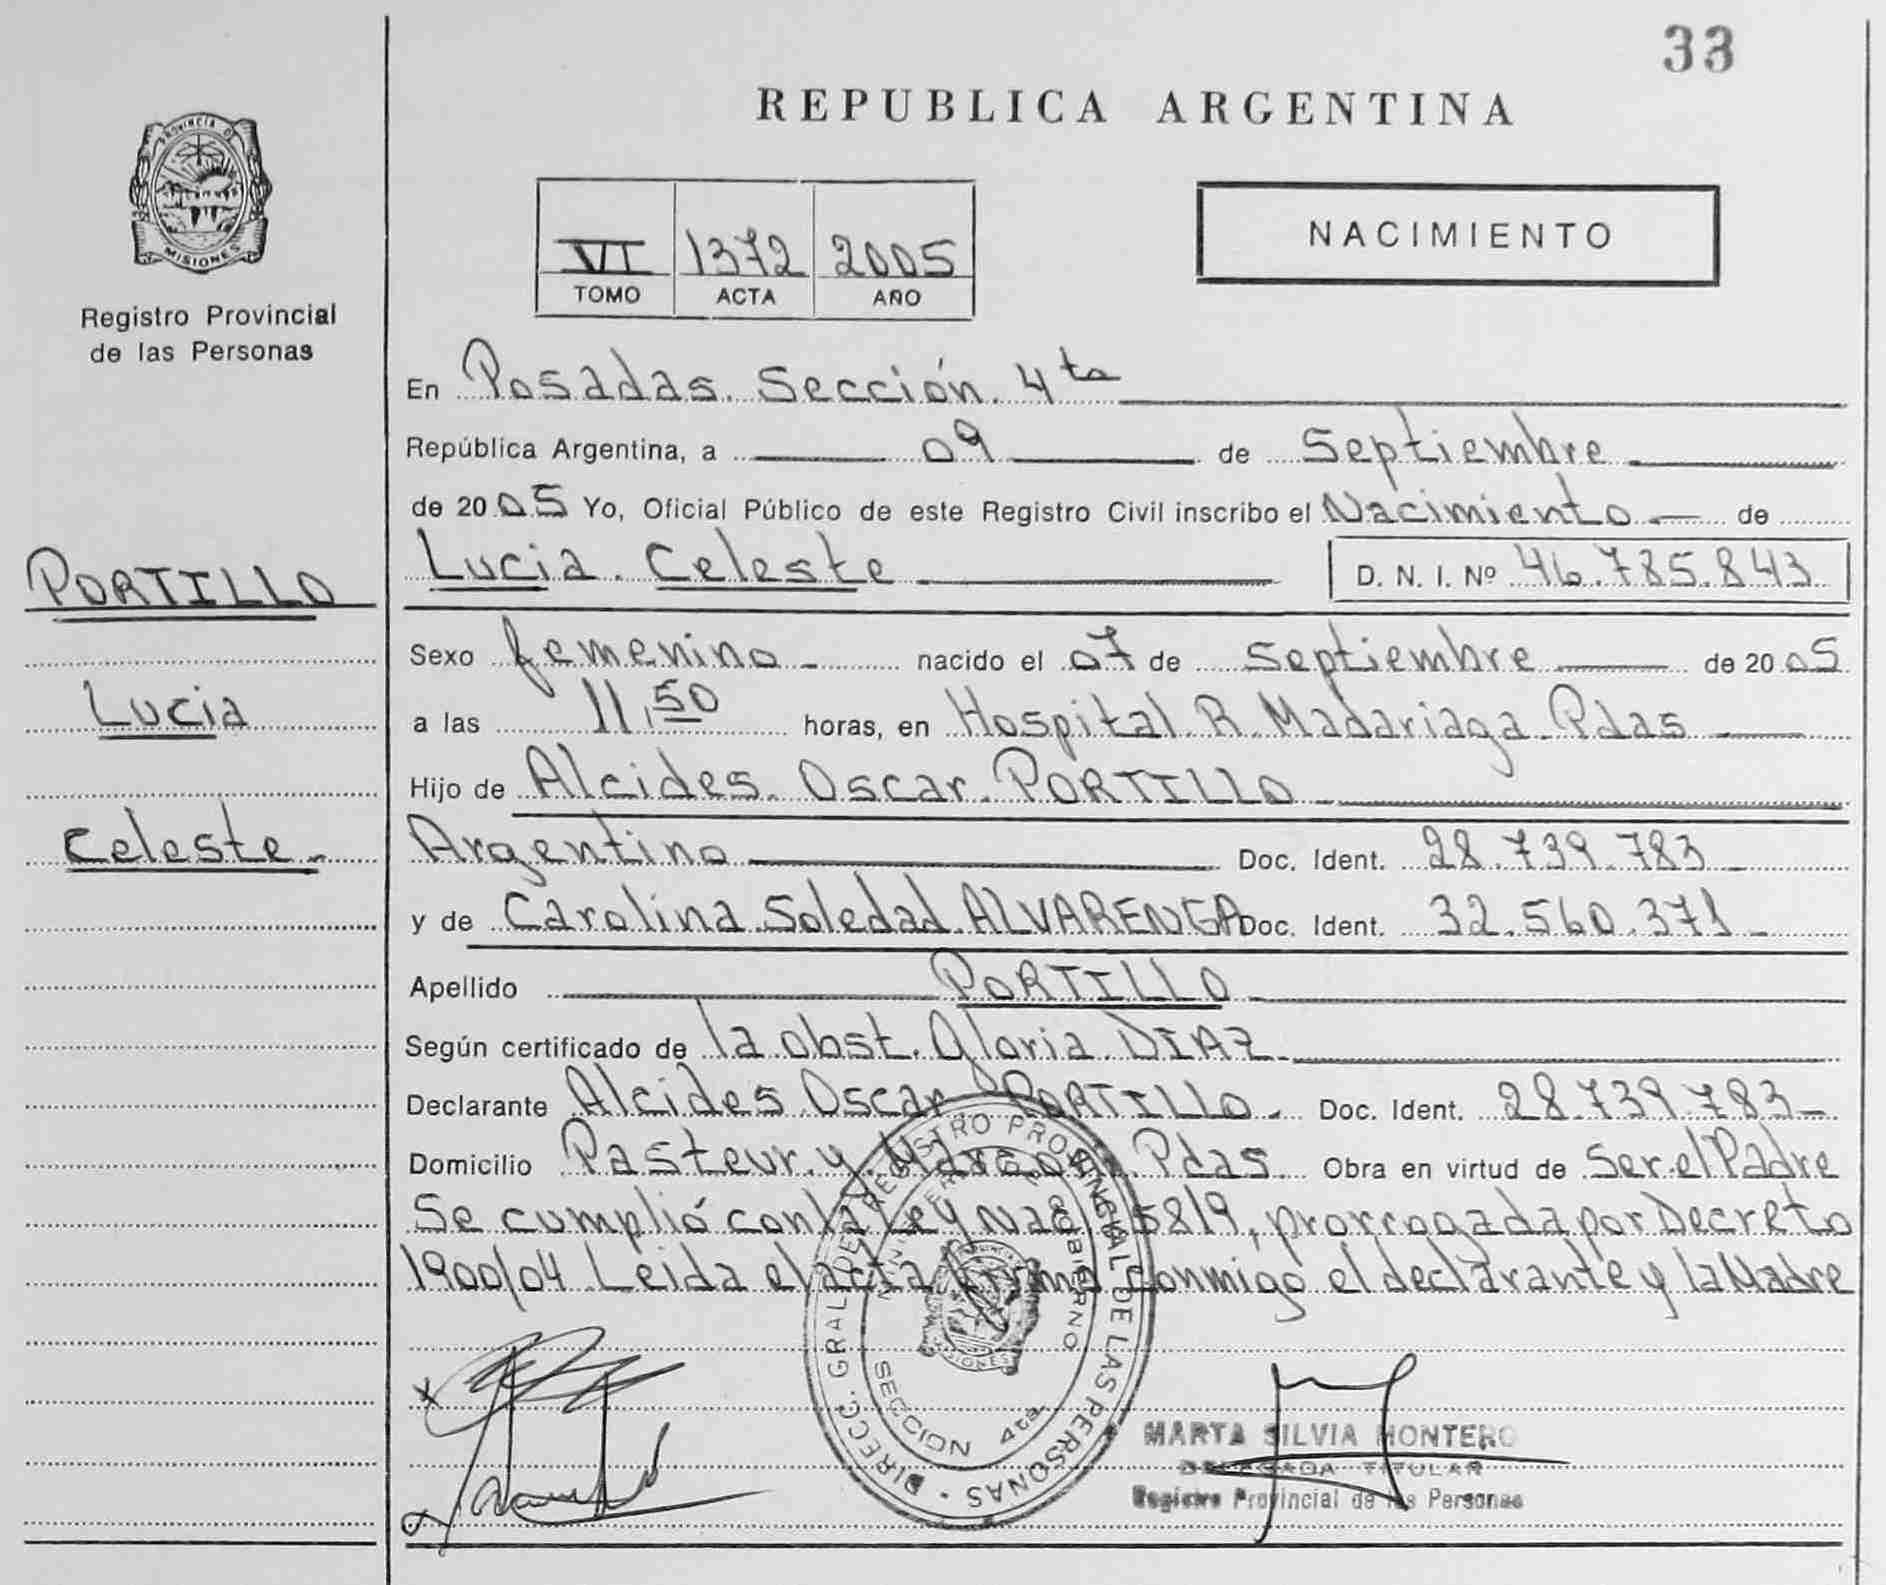 33
REPUBLICA ARGENTINA
PROVINCIA DE
MISIONES
Registro Provincial
de las Personas
VI 1372 2005
TOMO ACTA AÑO
NACIMIENTO
En Posadas Sección 4ta
República Argentina, a 09 de Septiembre
de 2005 Yo, Oficial Público de este Registro Civil inscribo el Nacimiento de
Lucia Celeste D. N. I. Nº 46.785.843
PORTILLO
Lucia
Celeste
Sexo femenino nacido el 07 de Septiembre de 2005
a las 11,50 horas, en Hospital R. Madariaga Pdas
Hijo de Alcides Oscar PORTILLO
Argentino Doc. Ident. 28.739.783
y de Carolina Soledad ALVARENGA Doc. Ident. 32.560.371
Apellido PORTILLO
Según certificado de la obst. Gloria DIAZ
Declarante Alcides Oscar PORTILLO Doc. Ident. 28.739.783
Domicilio Pasteur y Pdas Obra en virtud de Ser el Padre
Se cumplió con la Ley Nac. 25819, prorrogada por Decreto
1900/04 Leida el acta firma conmigo el declarante y la Madre
DIRECC. GRAL. DEL REGISTRO PROVINCIAL DE LAS PERSONAS
MINISTERIO DE GOBIERNO
SECCION 4ta.
MISIONES
MARTA SILVIA MONTERO
DELEGADA TITULAR
Registro Provincial de las Personas